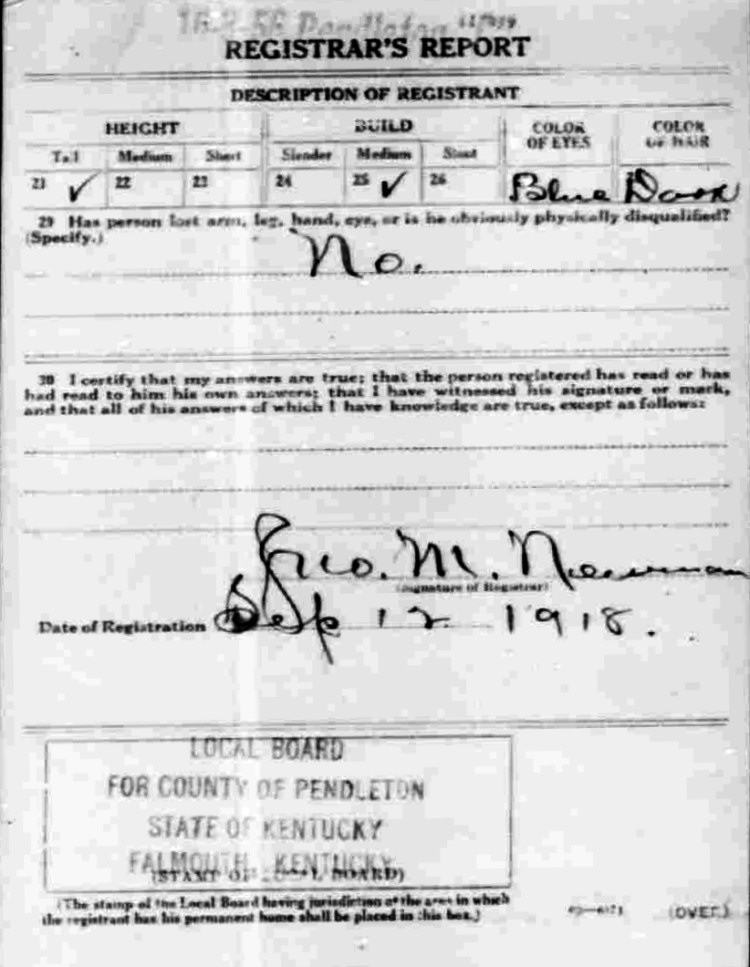 16-2-56 Pendleton
REGISTRAR'S REPORT
DESCRIPTION OF REGISTRANT
HEIGHT BUILD COLOR OF EYES COLOR OF HAIR
Tall Medium Short Slender Medium Stout
21 ✓ 22 23 24 25 ✓ 26 Blue Dark
29 Has person lost arm, leg, hand, eye, or is he obviously physically disqualified?
(Specify.)
No.
30 I certify that my answers are true; that the person registered has read or has
had read to him his own answers; that I have witnessed his signature or mark,
and that all of his answers of which I have knowledge are true, except as follows:
Jno. M. Newman
(Signature of Registrar)
Date of Registration Sep 12 1918.
LOCAL BOARD
FOR COUNTY OF PENDLETON
STATE OF KENTUCKY
FALMOUTH, KENTUCKY
(STAMP OF LOCAL BOARD)
(The stamp of the Local Board having jurisdiction of the area in which
the registrant has his permanent home shall be placed in this box.)
(OVER)